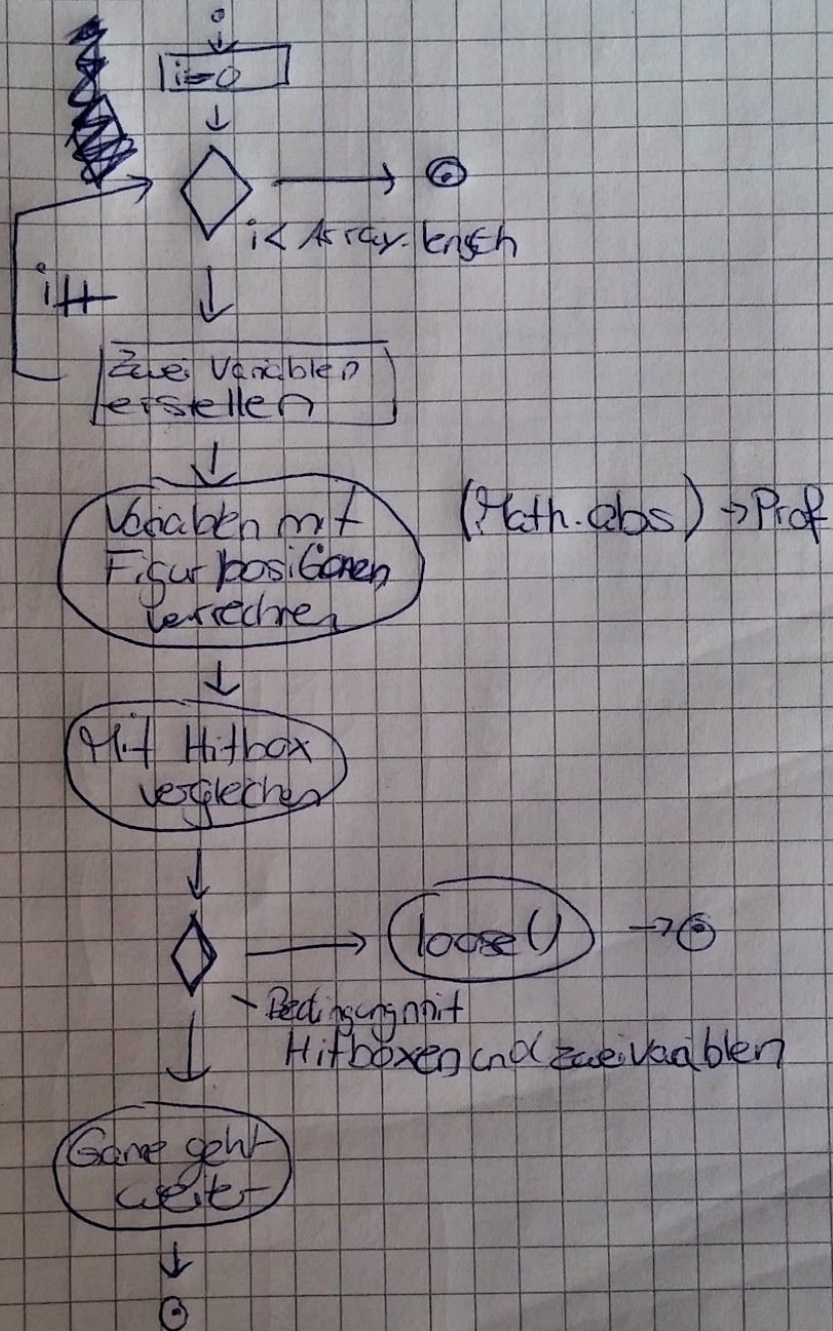 i=0
i< Array.length
i++
Zwei Variablen
erstellen
Variablen mit
Figurpositionen
verrechnen
(Math.abs) → Prof
Mit Hitbox
vergleichen
loose()
Bedingung mit
Hitboxen und zwei Variablen
Game geht
weiter